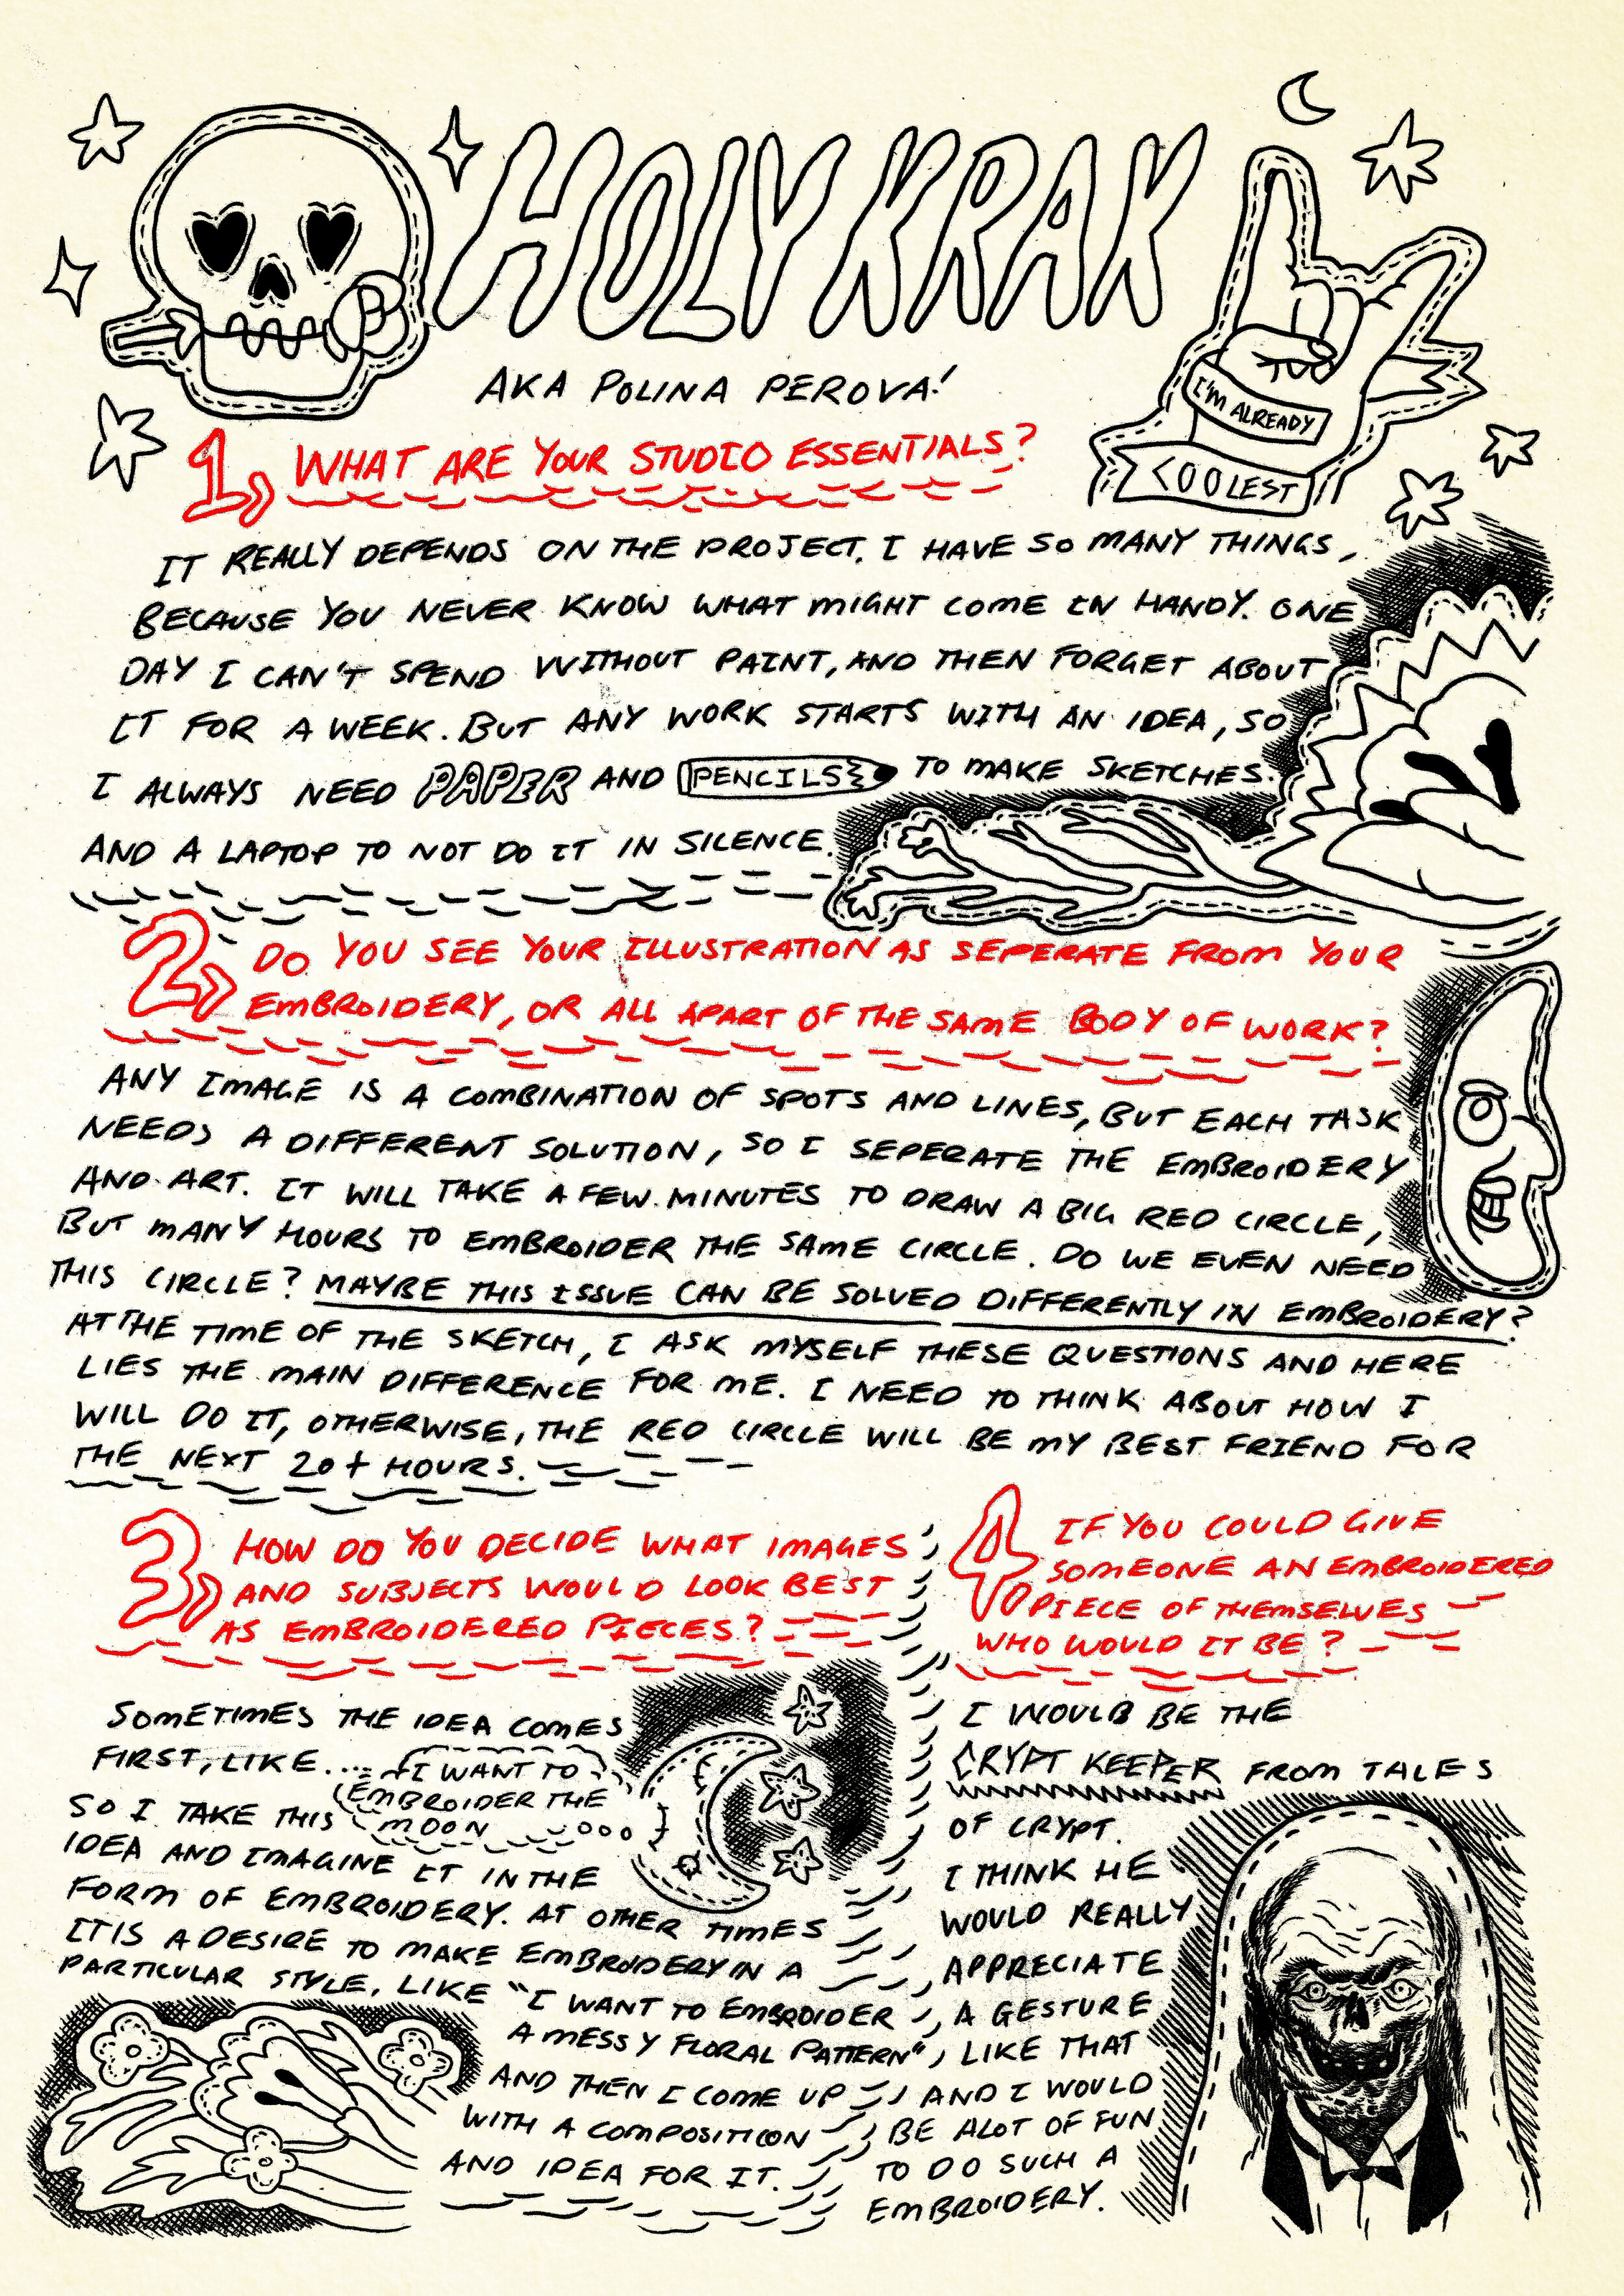 HOLY KRAK
AKA POLINA PEROVA!
I'M ALREADY
COOLEST
1, WHAT ARE YOUR STUDIO ESSENTIALS?
IT REALLY DEPENDS ON THE PROJECT. I HAVE SO MANY THINGS,
BECAUSE YOU NEVER KNOW WHAT MIGHT COME IN HANDY. ONE
DAY I CAN'T SPEND WITHOUT PAINT, AND THEN FORGET ABOUT
IT FOR A WEEK. BUT ANY WORK STARTS WITH AN IDEA, SO
I ALWAYS NEED PAPER AND PENCILS TO MAKE SKETCHES.
AND A LAPTOP TO NOT DO IT IN SILENCE.
2, DO YOU SEE YOUR ILLUSTRATION AS SEPERATE FROM YOUR
EMBROIDERY, OR ALL APART OF THE SAME BODY OF WORK?
ANY IMAGE IS A COMBINATION OF SPOTS AND LINES, BUT EACH TASK
NEEDS A DIFFERENT SOLUTION, SO I SEPERATE THE EMBROIDERY
AND ART. IT WILL TAKE A FEW MINUTES TO DRAW A BIG RED CIRCLE,
BUT MANY HOURS TO EMBROIDER THE SAME CIRCLE. DO WE EVEN NEED
THIS CIRCLE? MAYBE THIS ISSUE CAN BE SOLVED DIFFERENTLY IN EMBROIDERY?
AT THE TIME OF THE SKETCH, I ASK MYSELF THESE QUESTIONS AND HERE
LIES THE MAIN DIFFERENCE FOR ME. I NEED TO THINK ABOUT HOW I
WILL DO IT, OTHERWISE, THE RED CIRCLE WILL BE MY BEST FRIEND FOR
THE NEXT 20+ HOURS.
3, HOW DO YOU DECIDE WHAT IMAGES
AND SUBJECTS WOULD LOOK BEST
AS EMBROIDERED PIECES?
SOMETIMES THE IDEA COMES
FIRST, LIKE....
I WANT TO
EMBROIDER THE
MOON
SO I TAKE THIS
IDEA AND IMAGINE IT IN THE
FORM OF EMBROIDERY. AT OTHER TIMES
IT IS A DESIRE TO MAKE EMBROIDERY IN A
PARTICULAR STYLE, LIKE "I WANT TO EMBROIDER
A MESSY FLORAL PATTERN"
AND THEN I COME UP
WITH A COMPOSITION
AND IDEA FOR IT.
4, IF YOU COULD GIVE
SOMEONE AN EMBROIDERED
PIECE OF THEMSELVES
WHO WOULD IT BE?
I WOULD BE THE
CRYPT KEEPER FROM TALES
OF CRYPT.
I THINK HE
WOULD REALLY
APPRECIATE
A GESTURE
LIKE THAT
AND I WOULD
BE ALOT OF FUN
TO DO SUCH A
EMBROIDERY.